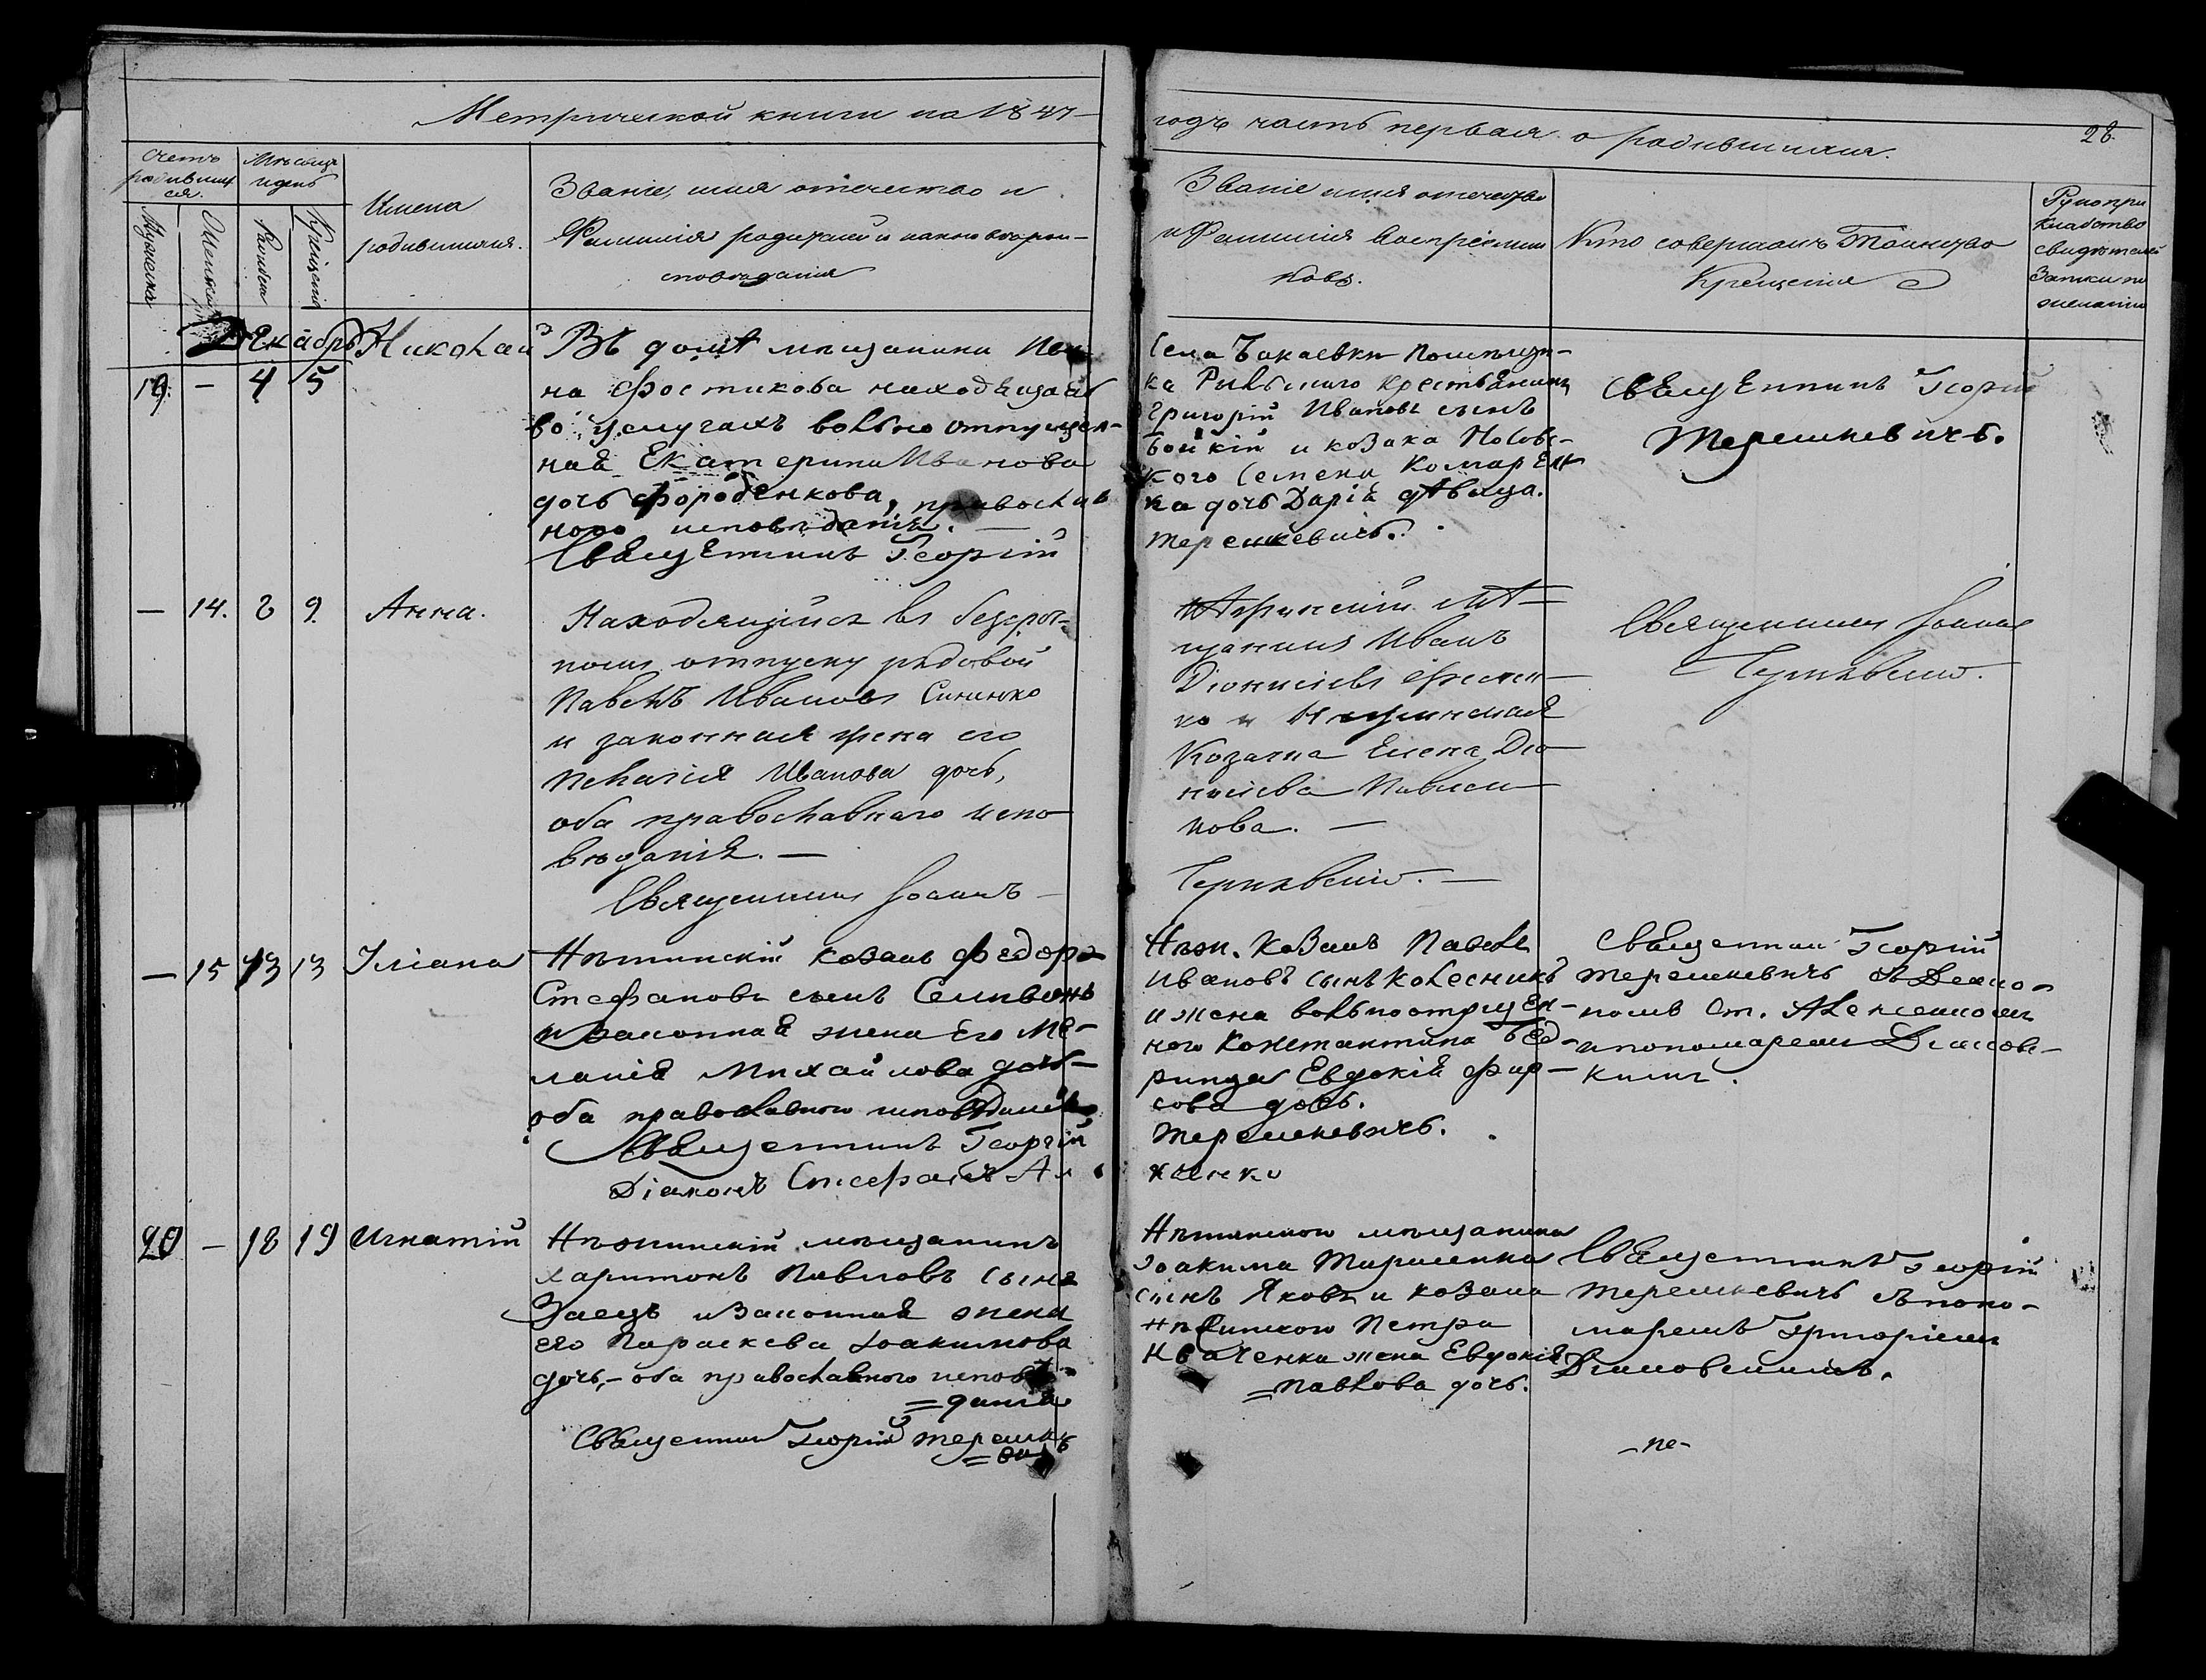 Метрической книги на 1847
годъ часть первая о родившихся.
28.
Счетъ
родивших
ся.
Мѣсяцъ
и день
Мужеска
Женска
Рожден
Крещенія
Имена
родившихся.
Званіе, имя отечество и
Фамилія родителей и какого вѣроис-
повѣданія
Званіе имя отечество
и Фамилія воспріемни
ковъ.
Кто совершалъ Таинство
Крещенія
Рукопри
кладство
свидѣтелей
Записи по
желанію
Декабрь
19. - 4 5
Николай
Въ домѣ мѣщанина
на Фостикова находящаяся
во услугахъ вольно отпущен-
ная Екатерина Иванова
дочь Фороденкова, православ
ного исповѣданія. —
Священникъ Георгій
Села Бакаевки помѣщи-
ка крестьянинъ
Григорій Ивановъ сынъ
Бойкій и козака Носовс-
кого Семена Комарен
ка дочь Дарія дѣвица.
Терешкевичъ.
Священникъ Георгій
Терешкевичъ.
— 14. 8 9.
Анна.
Находящійся въ безсроч-
номъ отпуску рядовой
Павелъ Ивановъ Синенко
и законная жена его
Пелагія Иванова дочь,
оба православнаго испо
вѣданія. —
Священникъ Іоаннъ —
Нѣжинскій мѣ-
щанинъ Иванъ
Діонисіевъ
ко и Нѣжинская
Козачка Елена Діо-
нисіева
кова. —
—
Священникъ Іоаннъ
— 15 13 13
Уліана
Нѣжинскій козакъ Федоръ
Стефановъ сынъ
и законная жена его Ме-
ланія Михайлова дочь-
оба православного исповѣданія
Священникъ Георгій
Діаконъ Стефанъ Ал
Нѣж. козакъ Павелъ
Ивановъ сынъ Колесникъ
и жена вольноотпущен-
ного Константина Бед-
рицы Евдокія Фир-
сова дочь.
Терешкевичъ.
ксенко
Священникъ Георгій
Терешкевичъ съ Діако-
номъ Ст. Алексенкомъ
и пономаремъ Димов-
скимъ.
20 — 18 19
Игнатій
Нѣжинскій мѣщанинъ
Харитонъ Павловъ сынъ
Заецъ и законная жена
его Параскева Іоакимова
дочь, - оба православного исповѣ-
=данія
Священникъ Георгій Терешке
=вичъ
Нѣжинского мѣщанина
Іоакима
сынъ Яковъ и козака
Нѣжинского Петра
Квасенка жена Евдокія
=Павлова дочь.
Священникъ Георгій
Терешкевичъ съ поно-
маремъ Григоріемъ
Димовскимъ.